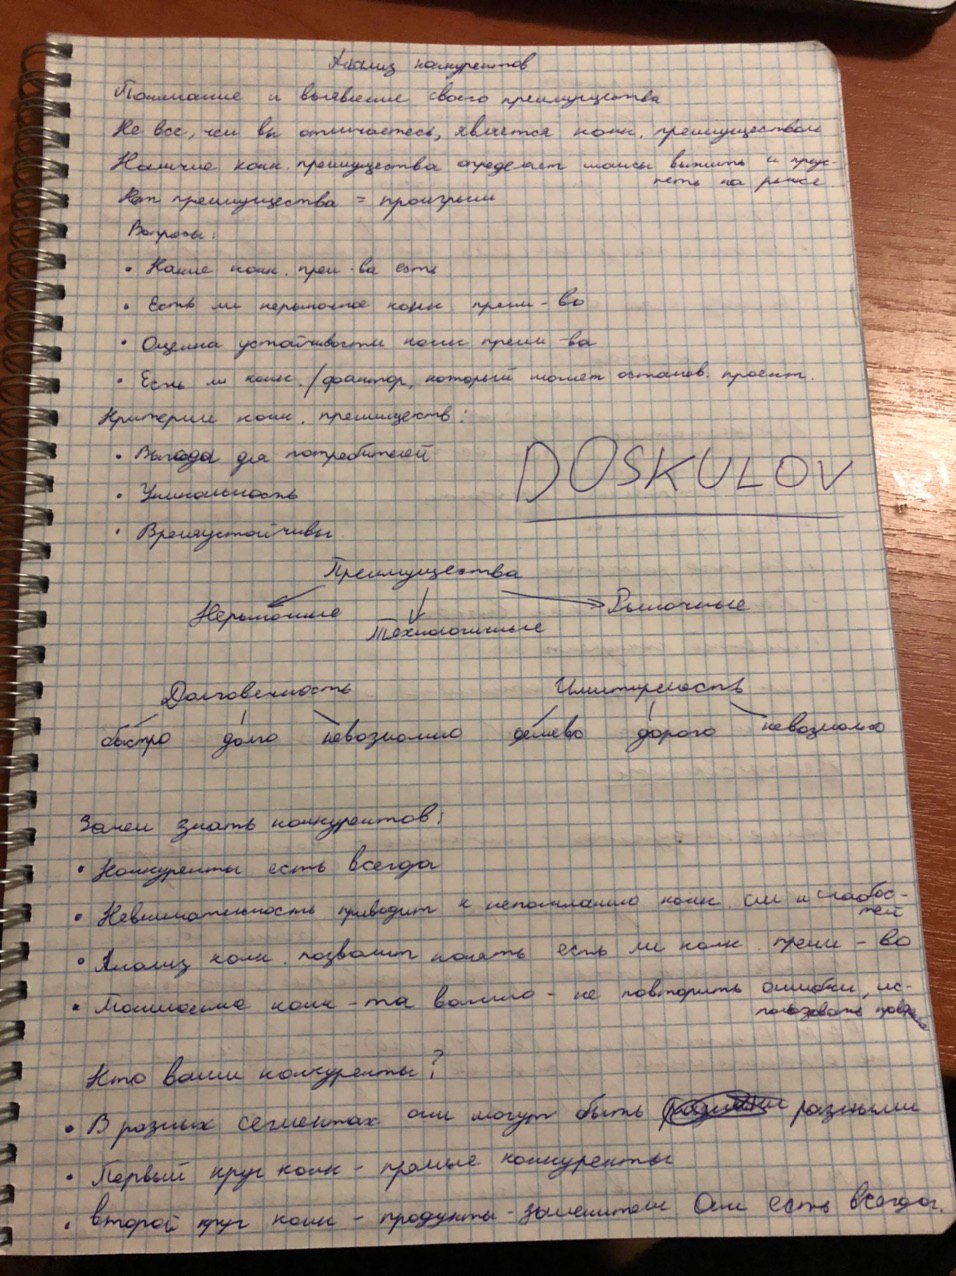 Анализ конкурентов
Понимание и выявение своего преимущества
Не все, чем вы отличаетесь, является конк. преимуществом
Наличие конк. преимущества определяет шансы выжить и преус-
петь на рынке
Нет преимущества = проигрыш
Вопросы:
• Какие конк. преим-ва есть
• Есть ли нерыночное конк преим-во
• Оценка устойчивости конк преим-ва
• Есть ли конк./фактор, который может останов. проект.
Критерии конк. преимуществ:
• Выгода для потребителей
DOSKULOV
• Уникальность
• Времяустойчивы
Преимущества
Нерыночные
Технологичные
Рыночные
Долговечность
Имитируемость
быстро долго невозможно дешево дорого невозможно
Зачем знать конкурентов:
• Конкуренты есть всегда
• Невнимательность приводит к непониманию конк. сил и слабос-
тей
• Анализ конк. позволит понять есть ли конк. преим-во
• Понимание конк-та важно - не повторить ошибки, ис-
пользовать
Кто ваши конкуренты?
• В разных сегментах они могут быть разными
• Первый круг конк - прямые конкуренты
• второй круг конк - продукты-заменители Они есть всегда.